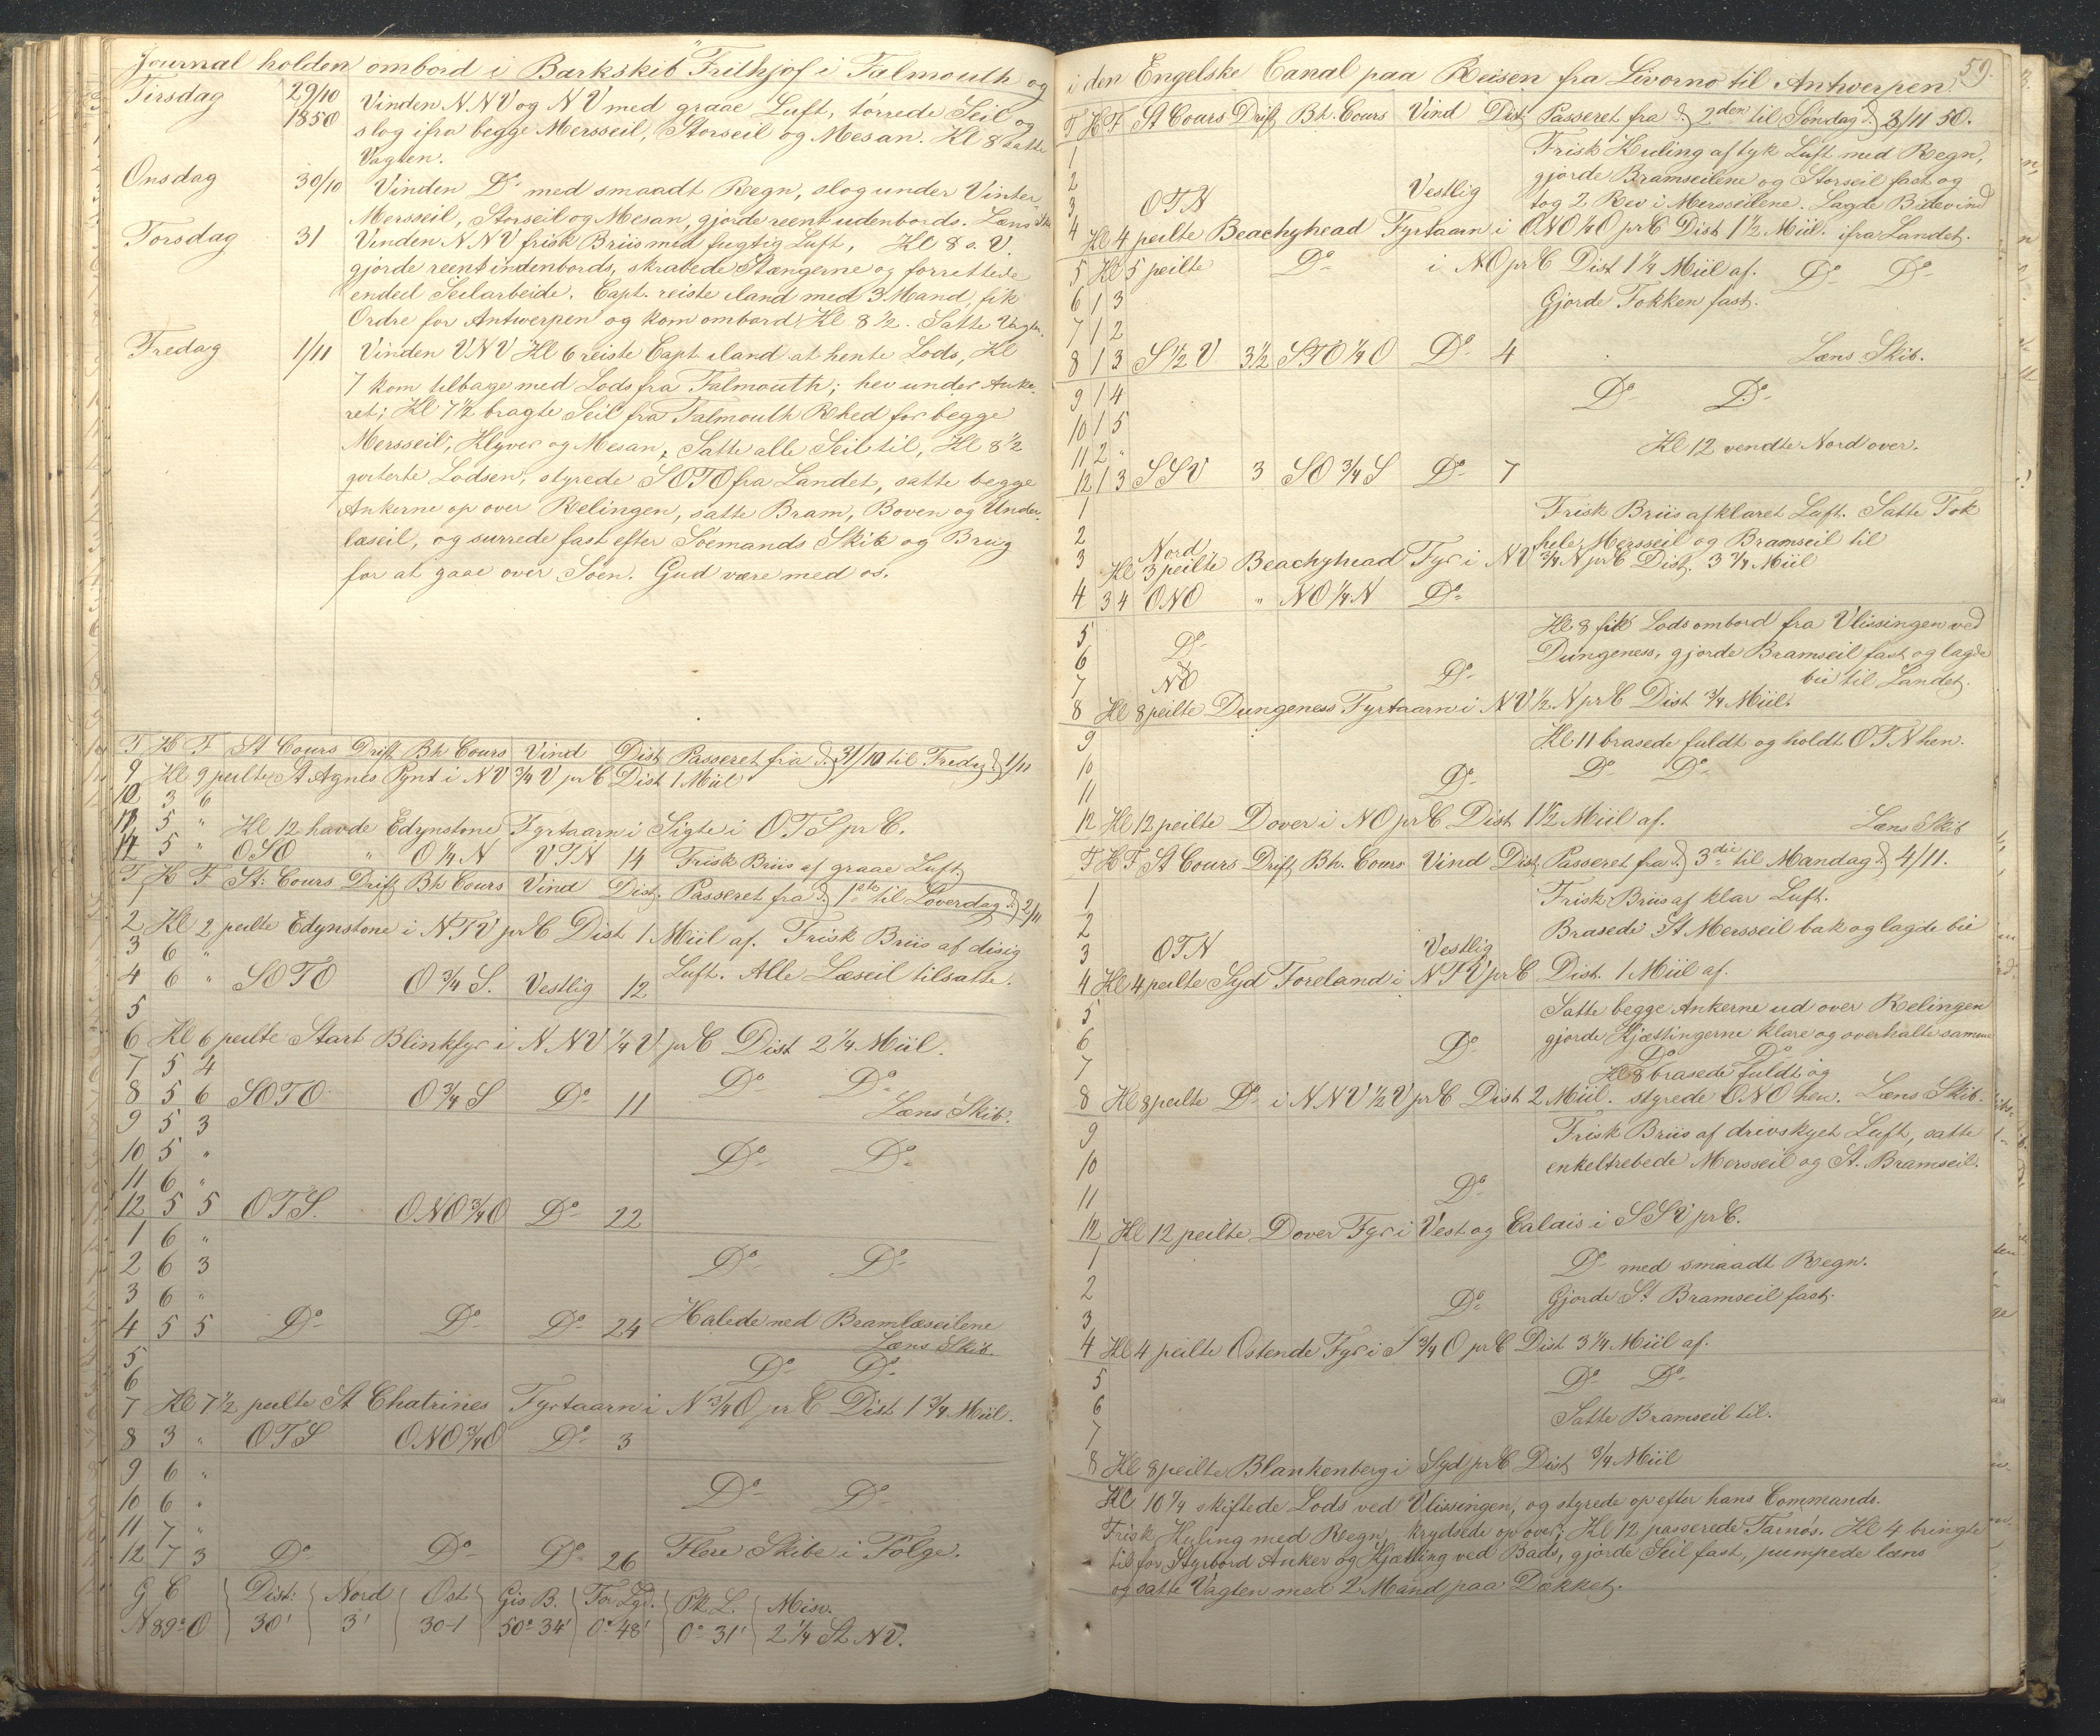 Journal holden ombord i Barkskib "Frithjof i Falmouth og
Tirsdag 29/10 1850 Vinden NNV og NV med graae Luft, tørrede Seil og
slog ifra begge Mersseil, Storseil og Mesan. Kl 8 satte
Vagten.
Onsdag 30/10 Vinden Do med smaadt Regn, slog under Vinter
Mersseil, Storseil og Mesan, gjorde reent udenbords. Læns Skib
Torsdag 31 Vinden NNV frisk Briis med fugtig Luft, Kl 8 a. V.
gjorde reent indenbords, skrabede Stængerne og forrettede
endeel Seilarbeide. Capt. reiste iland med 3 Mand, fik
Ordre for Antwerpen og kom ombord Kl 8 1/2. Satte Vagten.
Fredag 1/11 Vinden VNV Kl 6 reiste Capt iland at hente Lods, Kl
7 kom tilbage med Lods fra Falmouth; hev under Anke-
ret; Kl 7 1/2 bragte Seil fra Falmouth Rhed for begge
Mersseil, Klyver og Mesan, Satte alle Seil til, Kl 8 1/2
qviterte Lodsen, styrede SOTO fra Landet, satte begge
Ankerne op over Relingen, satte Bram, Boven og Under-
læseil, og surrede fast efter Söemands Skik og Brug
for at gaae over Söen. Gud være med os.
T K F St Cours Drift Bh Cours Vind Dist Passeret fra d. 31/10 til Fredag d. 1/11
9 Kl 9 peilte St Agnes Pynt i NV 3/4 V pr C Dist 1 Miil
10 3 6
11 5 " Kl 12 havde Edynstone Fyrtaarn i Sigte i OTS pr C.
12 5 " OSO " O 1/4 N VTN 14 Frisk Briis af graae Luft,
T K F St: Cours Drift Bh Cours Vind Dist. Passeret fra d. 1ste til Löverdag d. 2/11
1
2 Kl 2 peilte Edynstone i NTV pr C Dist 1 Miil af. Frisk Briis af disig
3 6 "
4 6 " SOTO O 3/4 S. Vestlig 12 Luft. Alle Læseil tilsatte.
5
6 Kl 6 peilte Start Blinkfyr i NNV 1/4 V pr C Dist 2 1/4 Miil.
7 5 4 Do Do
8 5 6 SOTO O 3/4 S Do 11 Læns Skib.
9 5 3
10 5 " Do Do
11 6 "
12 5 5 OTS. ONO 3/4 O Do 22
1 6 "
2 6 3 Do Do
3 6 "
4 5 5 Do Do Do 24 Halede ned Bramlæseilene
Læns Skib.
5
6 Do Do
7 Kl 7 1/2 peilte St Chatrines Fyrtaarn i N 3/4 O pr C Dist 1 3/4 Miil.
8 3 " OTS ONO 3/4 O Do 3
9 6 "
10 6 " Do Do
11 7 "
12 7 3 Do Do Do 26 Flere Skibe i Fölge.
G C Dist: Nord Ost Gis B. For Lgd. Pk L. Misv.
N 89° O 30' 3' 30-1 50° 34' 0° 48' 0° 31' 2 1/4 St NV.
59.
i den Engelske Canal paa Reisen fra Livorno til Antwerpen.
T K F St Cours Drift Bh. Cours Vind Dist Passeret fra d. 2den til Söndag d. 3/11 50.
1 Frisk Kuling af tyk Luft med Regn,
2 gjorde Bramseilene og Storseil fast og
3 OTN Vestlig tog 2 Rev i Mersseilene. Lagde Bidevind
4 Kl 4 peilte Beachyhead Fyrtaarn i ONO 1/4 O pr C Dist 1 1/2 Miil. ifra Landet.
5 Kl 5 peilte Do i NO pr C Dist 1 1/4 Miil af. Do Do
6 1 3 Gjorde Fokken fast.
7 1 2
8 1 3 S 1/2 V 3 1/2 STO 1/4 O Do 4 Læns Skib.
9 1 4 Do Do
10 1 5
11 2 " Kl 12 vendte Nord over.
12 1 3 SSV 3 SO 3/4 S Do 7
1 Frisk Briis afklaret Luft. Satte Fok
2 Nord hele Mersseil og Bramseil til
3 Kl 3 peilte Beachyhead Fyr i NV 3/4 N pr C Dist. 3 3/4 Miil
4 3 4 ONO " NO 1/4 N Do
5 Do Kl 8 fik Lods ombord fra Vlissingen ved
6 Dungeness, gjorde Bramseil fast og lagde
7 NO Do bie til Landet.
8 Kl 8 peilte Dungeness Fyrtaarn i NV 1/2 N pr C Dist 3/4 Miil.
9 Kl 11 brasede fuldt og holdt OTN hen.
10 Do Do Do
11
12 Kl 12 peilte Dover i NO pr C Dist 1 1/2 Miil af. Læns Skib
T K F St Cours Drift Bh. Cours Vind Dist Passeret fra d. 3die til Mandag d. 4/11.
1 Frisk Briis af klar Luft.
2 Brasede St Mersseil bak og lagde bie
3 OTN Vestlig
4 Kl 4 peilte Syd Foreland i NTV pr C Dist. 1 Miil af.
5 Satte begge Ankerne ud over Relingen
6 Do gjorde Kjættingerne klare og overhalte samme
7 Do Do
Kl 8 brasede fuldt og
8 Kl 8 peilte Do i NNV 1/2 V pr C Dist 2 Miil. styrede ONO hen. Læns Skib.
9 Frisk Briis af drivskyet Luft, satte
10 enkeltrebede Mersseil og St. Bramseil.
11 Do
12 Kl 12 peilte Dover Fyr i Vest og Calais i SSV pr C.
1 Do med smaadt Regn.
2 Do Gjorde St Bramseil fast.
3
4 Kl 4 peilte Ostende Fyr i S 3/4 O pr C Dist 3 1/4 Miil af.
5 Do Do
6 Satte Bramseil til.
7
8 Kl 8 peilte Blankenberg i Syd pr C Dist 3/4 Miil
Kl 10 1/4 skiftede Lods ved Vlissingen, og styrede op efter hans Commando.
Frisk Kuling med Regn, krydsede op over; Kl 12 passerede Tarnös. Kl 4 bringte
til for Styrbord Anker og Kjætting ved Bads, gjorde Seil fast, pumpede læns
og satte Vagten med 2 Mand paa Dækket.